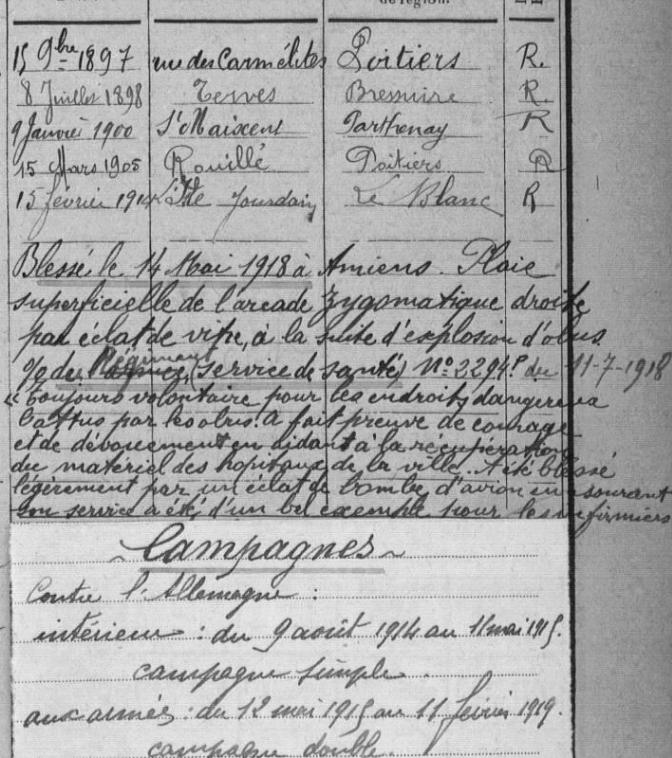 de région.
15 9bre 1897 rue des Carmélites Poitiers R.
8 Juillet 1898 Terves Bressuire R.
9 Janvier 1900 St Maixent Parthenay R
15 Mars 1905 Rouillé Poitiers R
15 février 1914 Jourdain Le Blanc R
Blessé le 14 Mai 1918 à Amiens. Plaie
superficielle de l'arcade zygomatique droite
par éclat de vitre, à la suite d'explosion d'obus
Régiment
(service de santé) No 2294 du 11-7-1918
"Toujours volontaire pour les endroits dangereux
battus par les obus. A fait preuve de courage
et de dévouement en aidant à la récupération
du matériel des hopitaux de la ville. A été blessé
légèrement par un éclat de bombe d'avion en assurant
son service a été d'un bel exemple pour les infirmiers
Campagnes
Contre l'Allemagne :
intérieur : du 9 août 1914 au 11 mai 1915.
campagne simple.
aux armées : du 12 mai 1915 au 11 février 1919.
campagne double.